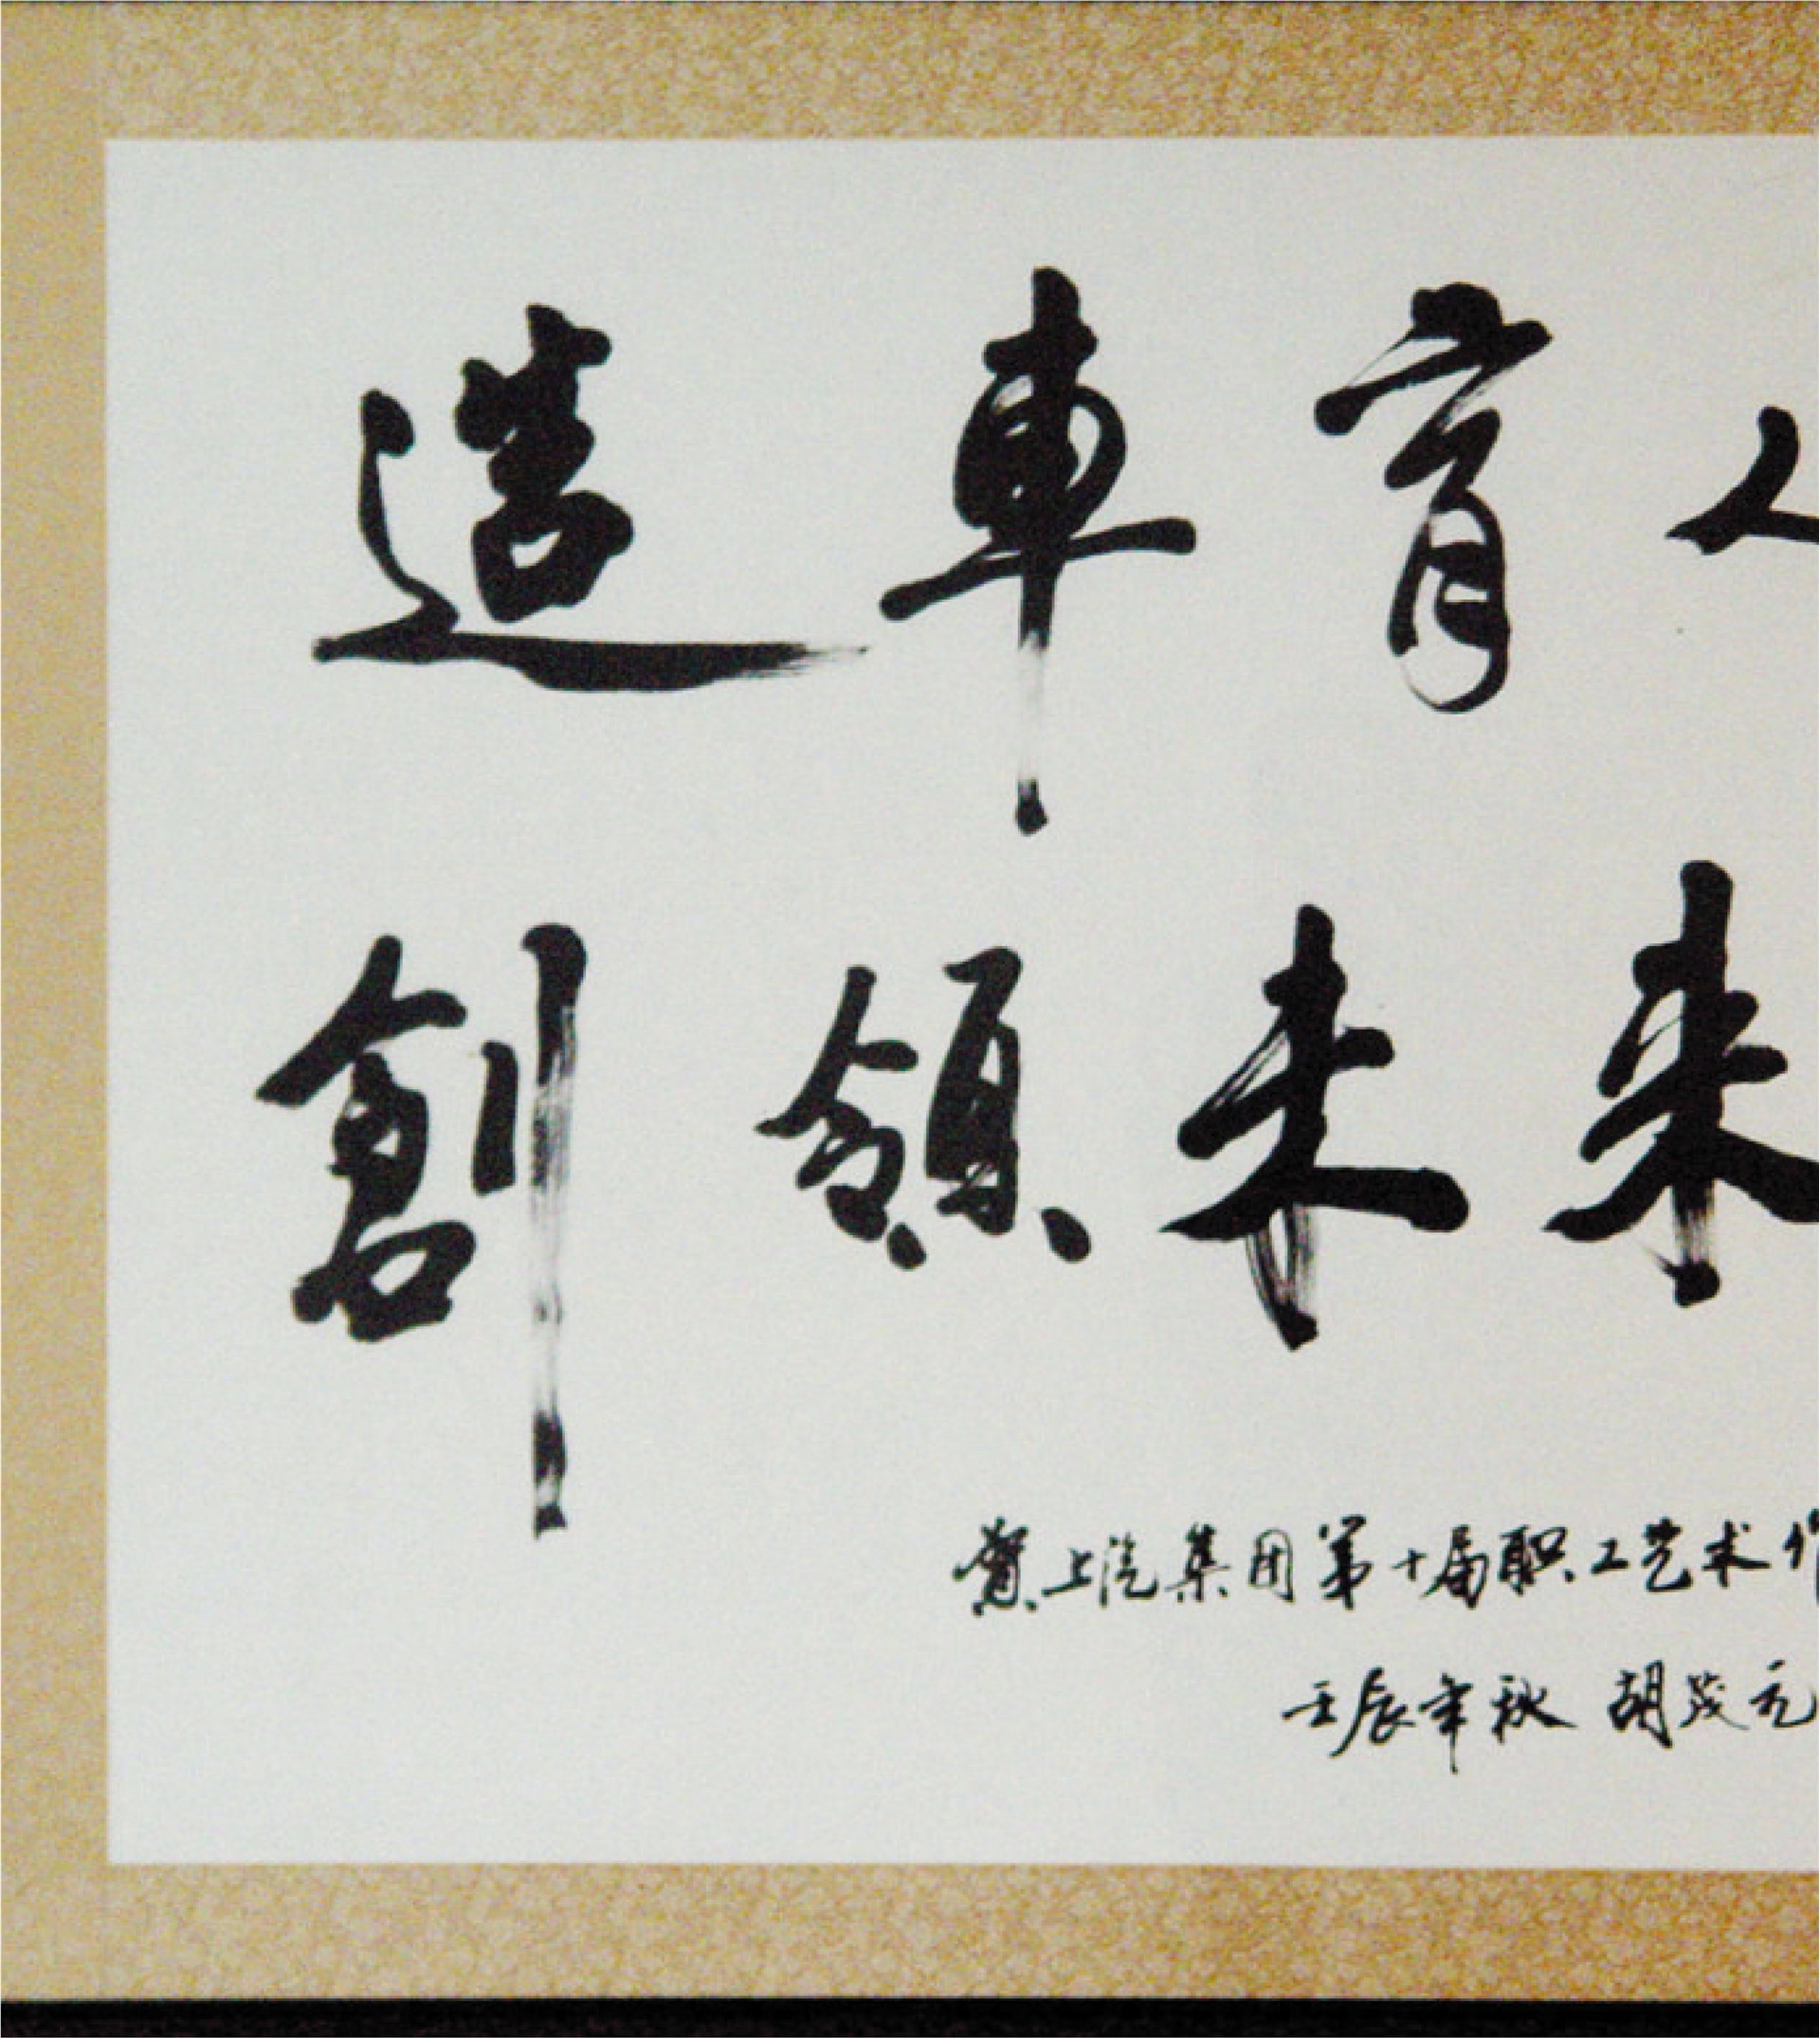 造車育人
創領未来
賀上汽集团第十届职工艺术作
壬辰年秋 胡茂元